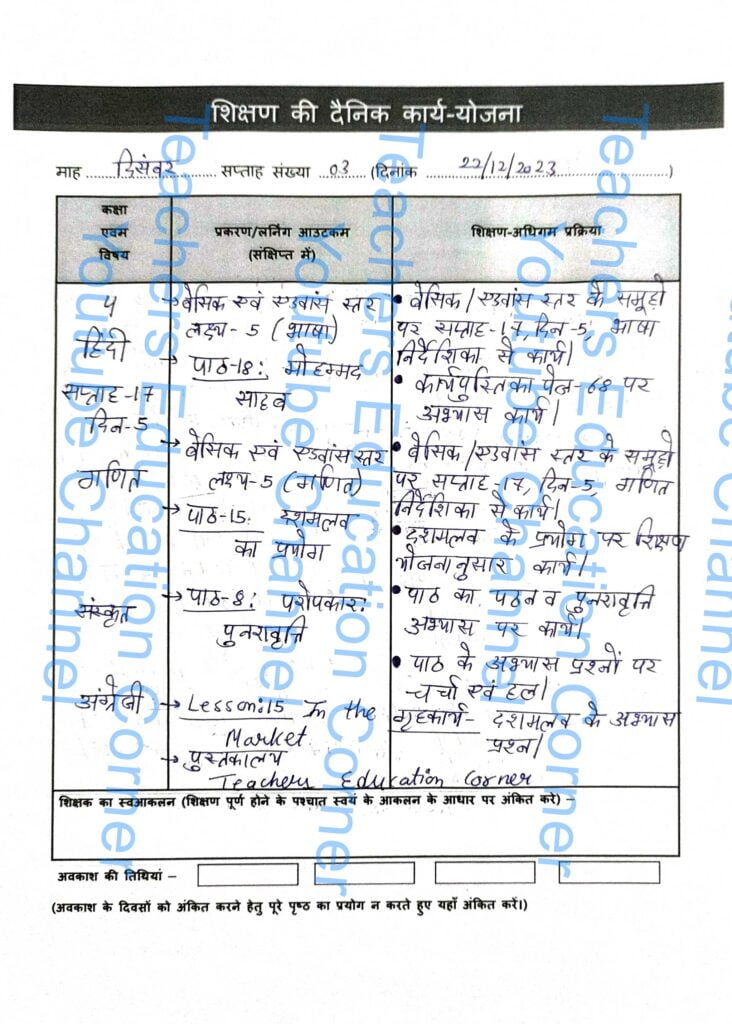 शिक्षण की दैनिक कार्य-योजना
माह दिसंबर सप्ताह संख्या 03 (दिनांक 22/12/2023)
कक्षा एवम विषय
प्रकरण/लर्निंग आउटकम (संक्षिप्त में)
शिक्षण-अधिगम प्रक्रिया
5
हिंदी
सप्ताह-17
दिन-5
→ बेसिक एवं एडवांस स्तर
लक्ष्य-5 (भाषा)
→ पाठ-18: मोहम्मद
साहब
• बेसिक/एडवांस स्तर के समूहो
पर सप्ताह-17, दिन-5, भाषा
निर्देशिका से कार्य।
• कार्यपुस्तिका पेज-68 पर
अभ्यास कार्य।
गणित
→ बेसिक एवं एडवांस स्तर
लक्ष्य-5 (गणित)
→ पाठ-15: दशमलव
का प्रयोग
• बेसिक/एडवांस स्तर के समूहो
पर सप्ताह-17, दिन-5, गणित
निर्देशिका से कार्य।
• दशमलव के प्रयोग पर शिक्षण
योजनानुसार कार्य।
संस्कृत
→ पाठ-8: परोपकार:
पुनरावृत्ति
• पाठ का पठन व पुनरावृत्ति
अभ्यास पर कार्य।
• पाठ के अभ्यास प्रश्नों पर
चर्चा एवं हल।
अंग्रेजी
→ Lesson:15 In the
Market
→ पुस्तकालय
गृहकार्य- दशमलव के अभ्यास
प्रश्न।
Teachers Education Corner
शिक्षक का स्वआकलन (शिक्षण पूर्ण होने के पश्चात स्वयं के आकलन के आधार पर अंकित करे) –
अवकाश की तिथियां –
(अवकाश के दिवसों को अंकित करने हेतु पूरे पृष्ठ का प्रयोग न करते हुए यहाँ अंकित करें।)
Teachers Education Corner
Youtube Channel
Teachers Education Corner
Youtube Channel
Teachers Education Corner
Youtube Channel